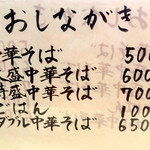 おしながき
中華そば 500
大盛中華そば 600
特盛中華そば 700
ごはん 100
ダブル中華そば 650